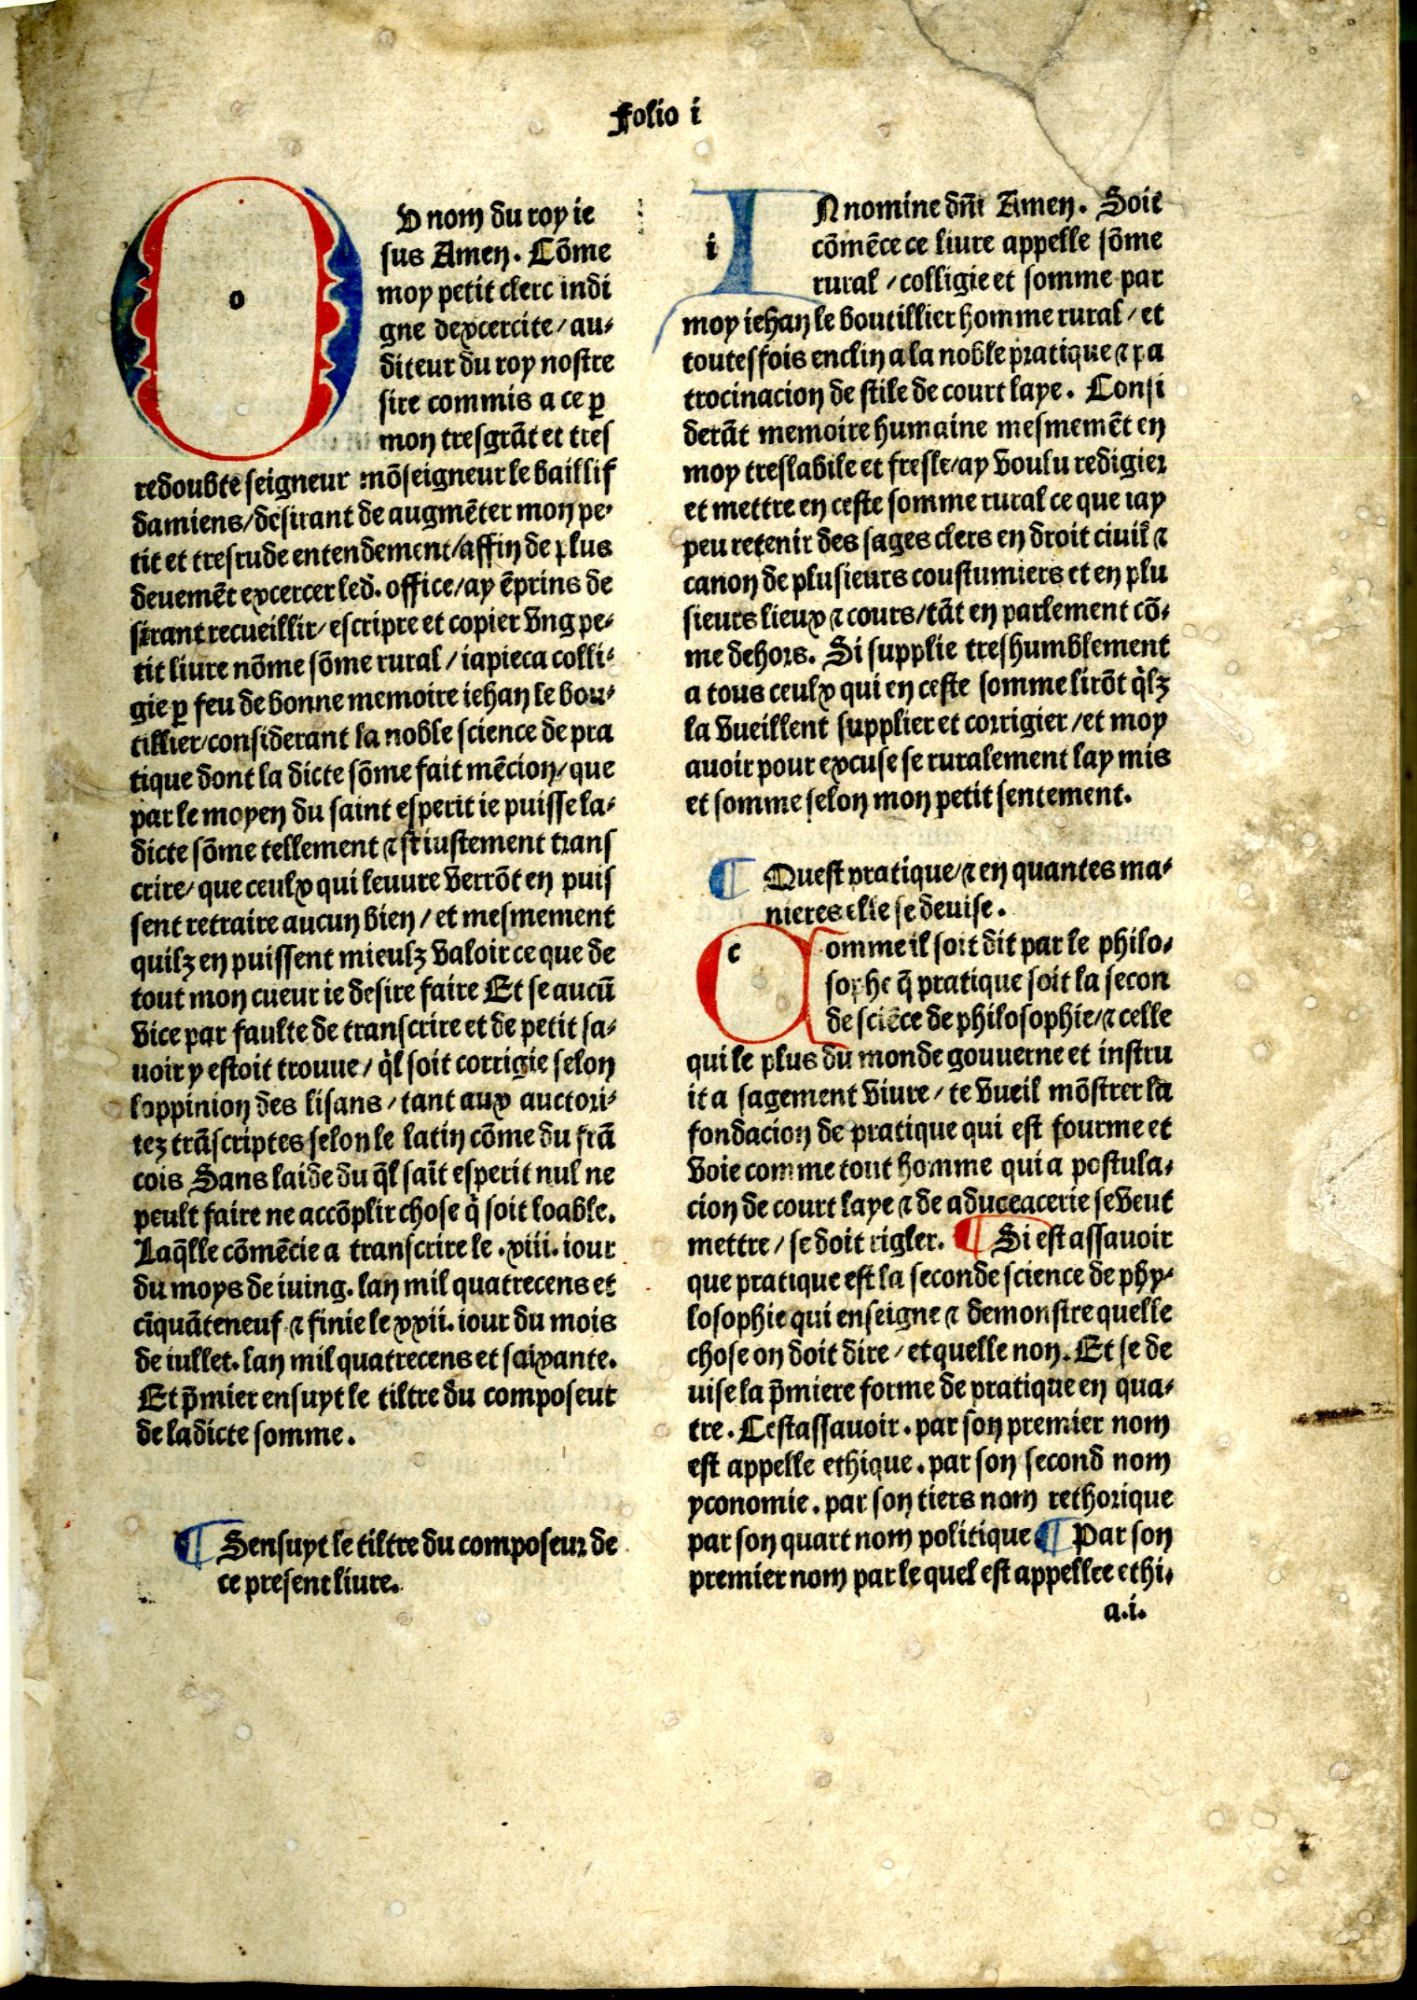 folio i
OV nom du roy ie
sus Amen. Cõme
moy petit clerc indi
gne dexcercite/au⸗
diteur du roy nostre
sire commis a ce ꝑ
mon tresgrãt et tres
redoubte seigneur mõseigneur le baillif
damiens/desirant de augmẽter mon pe⸗
tit et tresrude entendement/affin de plus
deuemẽt excercer led. office/ay ẽprins de
sirant recueillir/escripre et copier vng pe⸗
tit liure nõme sõme rural/iapieca colli⸗
gie ꝑ feu de bonne memoire iehan le bou⸗
tillier/considerant la noble science de pra
tique dont la dicte sõme fait mẽcion/que
par le moyen du saint esperit ie puisse la⸗
dicte sõme tellement ⁊ si iustement trans
crire/que ceulx qui leuure verrõt en puis
sent retraire aucun bien/et mesmement
quilz en puissent mieulz valoir ce que de
tout mon cueur ie desire faire Et se aucũ
vice par faulte de transcrire et de petit sa⸗
uoir y estoit trouue/q̃l soit corrigie selon
loppinion des lisans/tant aux auctori⸗
tez trãscriptes selon le latin cõme du frã
cois Sans laide du q̃l sait̃ esperit nul ne
peult faire ne accõplir chose q̃ soit loable.
Laq̃lle cõmẽcie a transcrire le .xiii. iour
du moys de iuing. lan mil quatrecens et
cĩquãteneuf ⁊ finie le xxii. iour du mois
de iullet. lan mil quatrecens et soixante.
Et p̃mier ensuyt le tiltre du composeur
de ladicte somme.
¶ Sensuyt le tiltre du composeur de
ce present liure.
IN nomine dñi Amen. Soit
cõmẽce ce liure appelle sõme
rural/colligie et somme par
moy iehan le boutillier homme rural/et
toutesfois enclin a la noble pratique ⁊ pa
trocinacion de stile de court laye. Consi
derãt memoire humaine mesmemẽt en
moy treslabile et fresle/ay voulu redigier
et mettre en ceste somme rural ce que iay
peu retenir des sages clers en droit ciuil ⁊
canon de plusieurs coustumiers et en plu
sieurs lieux ⁊ cours/tãt en parlement cõ⸗
me dehors. Si supplie treshumblement
a tous ceulx qui en ceste somme lirõt q̃lz
la vueillent supplier et corrigier/et moy
auoir pour excuse se ruralement lay mis
et somme selon mon petit sentement.
¶ Quest pratique/⁊ en quantes ma⸗
nieres elle se deuise.
Comme il soit dit par le philo⸗
sophe q̃ pratique soit la secon
de sciẽce de philosophie/⁊ celle
qui le plus du monde gouuerne et instru
it a sagement viure/te vueil mõstrer la
fondacion de pratique qui est fourme et
voie comme tout homme qui a postula⸗
cion de court laye ⁊ de aduceacerie se veut
mettre/se doit rigler. ¶ Si est assauoir
que pratique est la seconde science de phy⸗
losophie qui enseigne ⁊ demonstre quelle
chose on doit dire/et quelle non. Et se de
uise la p̃miere forme de pratique en qua⸗
tre. Cestassauoir. par son premier nom
est appelle ethique. par son second nom
yconomie. par son tiers nom rethorique
par son quart nom politique ¶ Par son
premier nom par le quel est appellee ethi⸗
a.i.